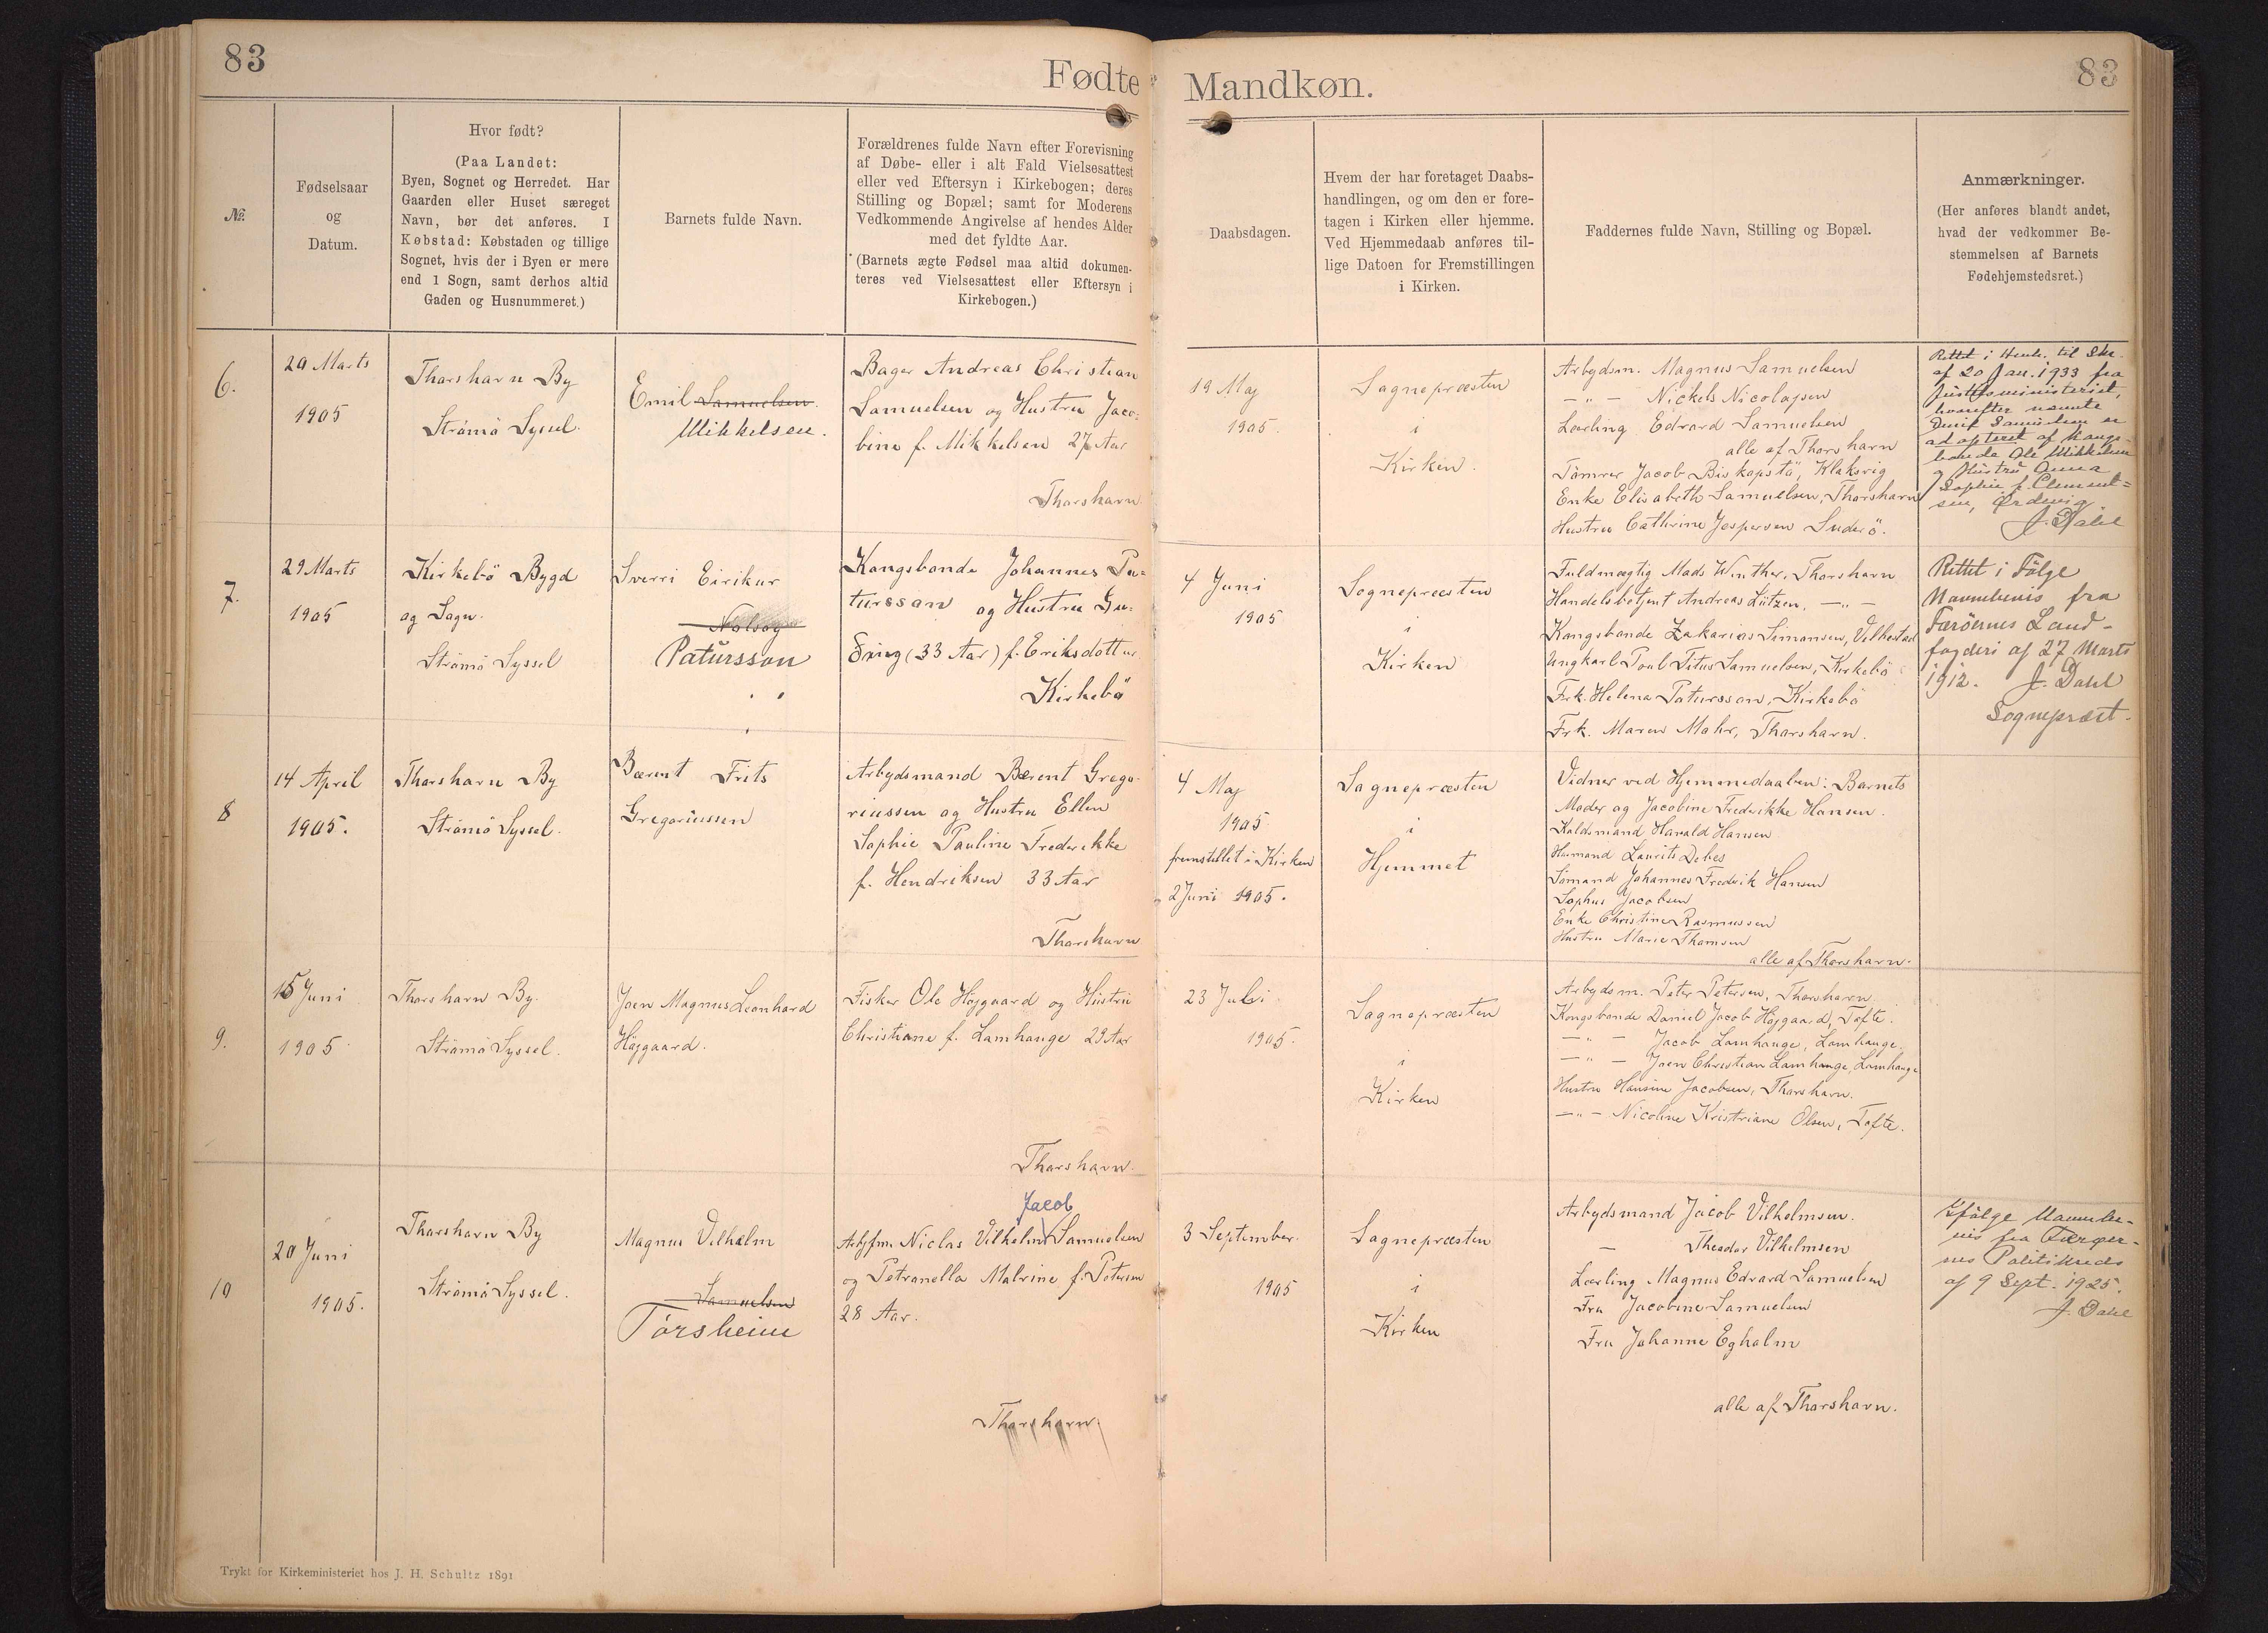 83
Fødte
Mandkøn.
83
№.
Fødselsaar
og
Datum.
Hvor født?
(Paa Landet:
Byen, Sognet og Herredet. Har
Gaarden eller Huset særeget
Navn, bør det anføres. I
Købstad: Købstaden og tillige
Sognet, hvis der i Byen er mere
end 1 Sogn, samt derhos altid
Gaden og Husnummeret.)
Barnets fulde Navn.
Forældrenes fulde Navn efter Forevisning
af Døbe- eller i alt Fald Vielsesattest
eller ved Eftersyn i Kirkebogen; deres
Stilling og Bopæl; samt for Moderens
Vedkommende Angivelse af hendes Alder
med det fyldte Aar.
(Barnets ægte Fødsel maa altid dokumen-
teres ved Vielsesattest eller Eftersyn i
Kirkebogen.)
Daabsdagen.
Hvem der har foretaget Daabs-
handlingen, og om den er fore-
tagen i Kirken eller hjemme.
Ved Hjemmedaab anføres til-
lige Datoen for Fremstillingen
i Kirken.
Faddernes fulde Navn, Stilling og Bopæl.
Anmærkninger.
(Her anføres blandt andet,
hvad der vedkommer Be-
stemmelsen af Barnets
Fødehjemstedsret.)
6.
29 Marts
1905
Thorshavn By
Strømø Syssel.
Emil Samuelsen.
Mikkelsen.
Bager Andreas Christian
Samuelsen og Hustru Jaco-
bine f. Mikkelsen 27 Aar
Thorshavn
19 Maj
1905.
Sognepræsten
i
Kirken.
Arbejdsm. Magnus Samuelsen
—"— Nickels Nicolajsen
Lærling Edvard Samuelsen
alle af Thorshavn
Tømrer Jacob Biskopstø, Klaksvig
Enke Elisabeth Samuelsen, Thorshavn
Hustru Cathrine Jespersen Suderø.
Rettet i Henh. til Skr.
af 20 Jan. 1933 fra
Justitsministeriet,
hvorefter nævnte
Emil Samuelsen er
adopteret af Kongs-
bonde Ole Mikkelsen
og Hustru Anna
Sophie f. Clement-
sen,
J. Dahl
7.
29 Marts
1905
Kirkebø Bygd
og Sogn.
Strømø Syssel
Sverri Eirikur
Nolsøy
Patursson
Kongsbonde Johannes Pa-
tursson og Hustru Gu-
ðny (33 Aar) f. Eriksdottur
Kirkebø
4 Juni
1905
Sognepræsten
i
Kirken
Fuldmægtig Mads Winther, Thorshavn
Handelsbetjent Andreas Lützen, —"—
Kongsbonde Zakarias Simonsen, Velbestad
Ungkarl Poul Titus Samuelsen, Kirkebø
Frk. Helena Patursson, Kirkebø
Frk. Maren Mohr, Thorshavn.
Rettet i Følge
Navnebevis fra
Færøernes Land-
fogderi af 27 Marts
1912. J. Dahl
Sognepræst.
8
14 April
1905.
Thorshavn By
Strømø Syssel.
Bærent Frits
Gregoriussen
Arbejdsmand Bærent Grego-
riussen og Hustru Ellen
Sophie Pauline Frederikke
f. Hendriksen 33 Aar
Thorshavn
4 Maj
1905
fremstillet i Kirken
2 Juni 1905.
Sognepræsten
i
Hjemmet
Vidner ved Hjemmedaaben: Barnets
Moder og Jacobine Frederikke Hansen.
Harald Hansen
Laurits Debes
Sømand Johannes Fredrik Hansen
Sophus Jacobsen
Enke Christine Rasmussen
Hustru Marie Thomsen
alle af Thorshavn.
9.
15 Juni
1905
Thorshavn By.
Strømø Syssel.
Joen Magnus Leonhard
Højgaard.
Fisker Ole Højgaard og Hustru
Christiane f. Lamhauge 29 Aar
Thorshavn.
23 Juli
1905.
Sognepræsten
i
Kirken
Arbejdsm. Peter Petersen, Thorshavn
Kongsbonde Daniel Jacob Højgaard, Tofte.
—"— Jacob Lamhauge, Lamhauge.
—"— Joen Christian Lamhauge, Lamhauge
Hustru Hansine Jacobsen, Thorshavn.
—"— Nicoline Kristiane Olsen, Tofte.
10
20 Juni
1905.
Thorshavn By
Strømø Syssel.
Magnus Vilhelm
Samuelsen
Tórsheim
Jacob
Arbejdsm. Niclas Vilhelm Samuelsen
og Petranella Malvine f. Petersen
28 Aar.
Thorshavn.
3 September.
1905
Sognepræsten
i
Kirken
Arbejdsmand Jacob Vilhelmsen.
— Theodor Vilhelmsen
Lærling Magnus Edvard Samuelsen
Fru Jacobine Samuelsen
Fru Johanne Egholm
alle af Thorshavn.
Ifølge Navnebe-
vis fra Færøer-
nes Politikreds
af 9 Sept. 1925.
J. Dahl
Trykt for Kirkeministeriet hos J. H. Schultz 1891